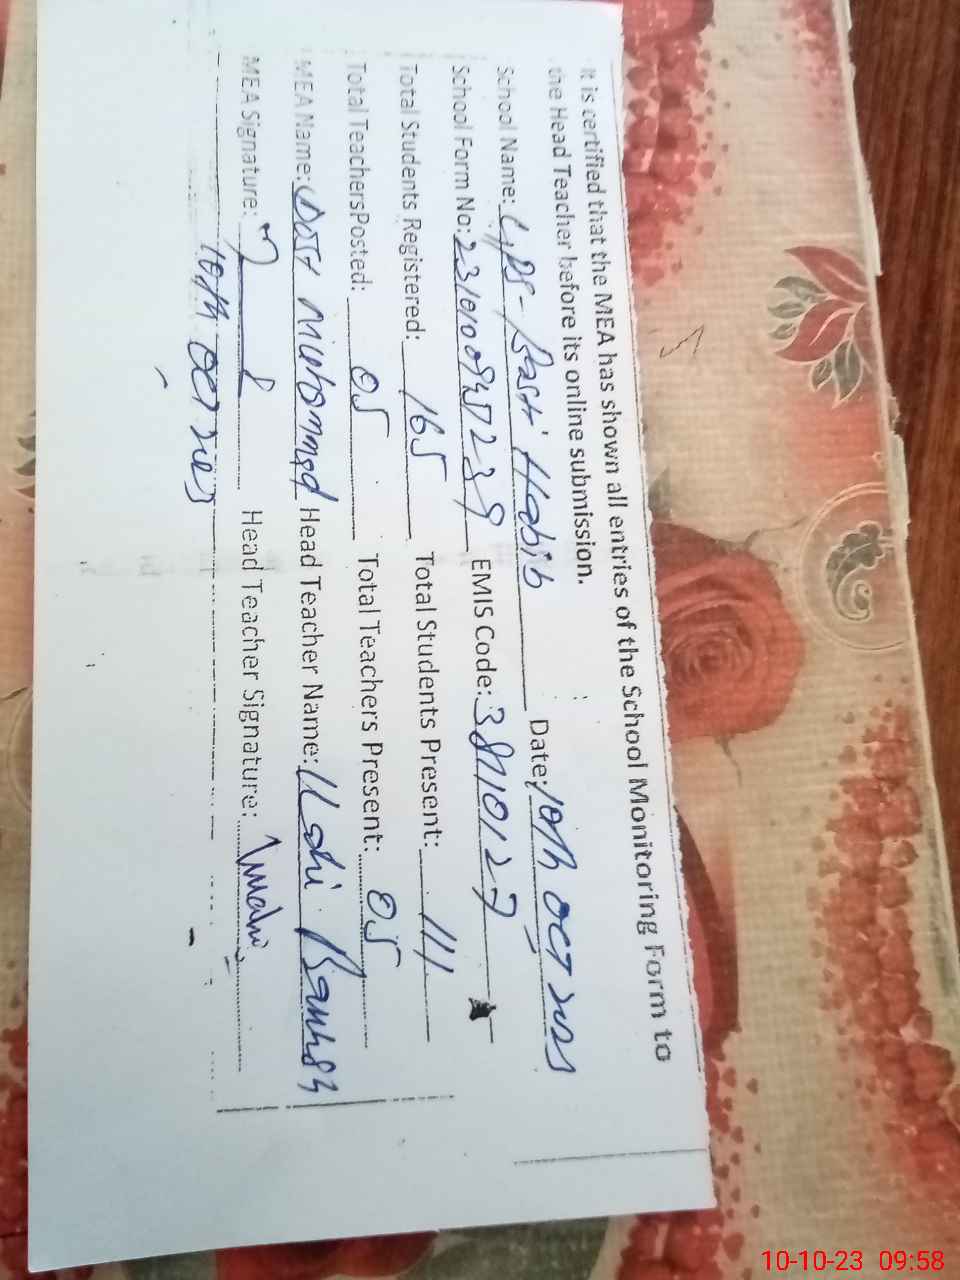 It is certified that the MEA has shown all entries of the School Monitoring Form to
the Head Teacher before its online submission.
School Name: GPS-Basti Habib Date: 10th OCT 2023
School Form No: EMIS Code:
Total Students Registered: 165 Total Students Present: 111
Total TeachersPosted: 05 Total Teachers Present: 05
MEA Name: Dost Muhammad Head Teacher Name:
MEA Signature: Head Teacher Signature:
10th OCT 2023
10-10-23 09:58